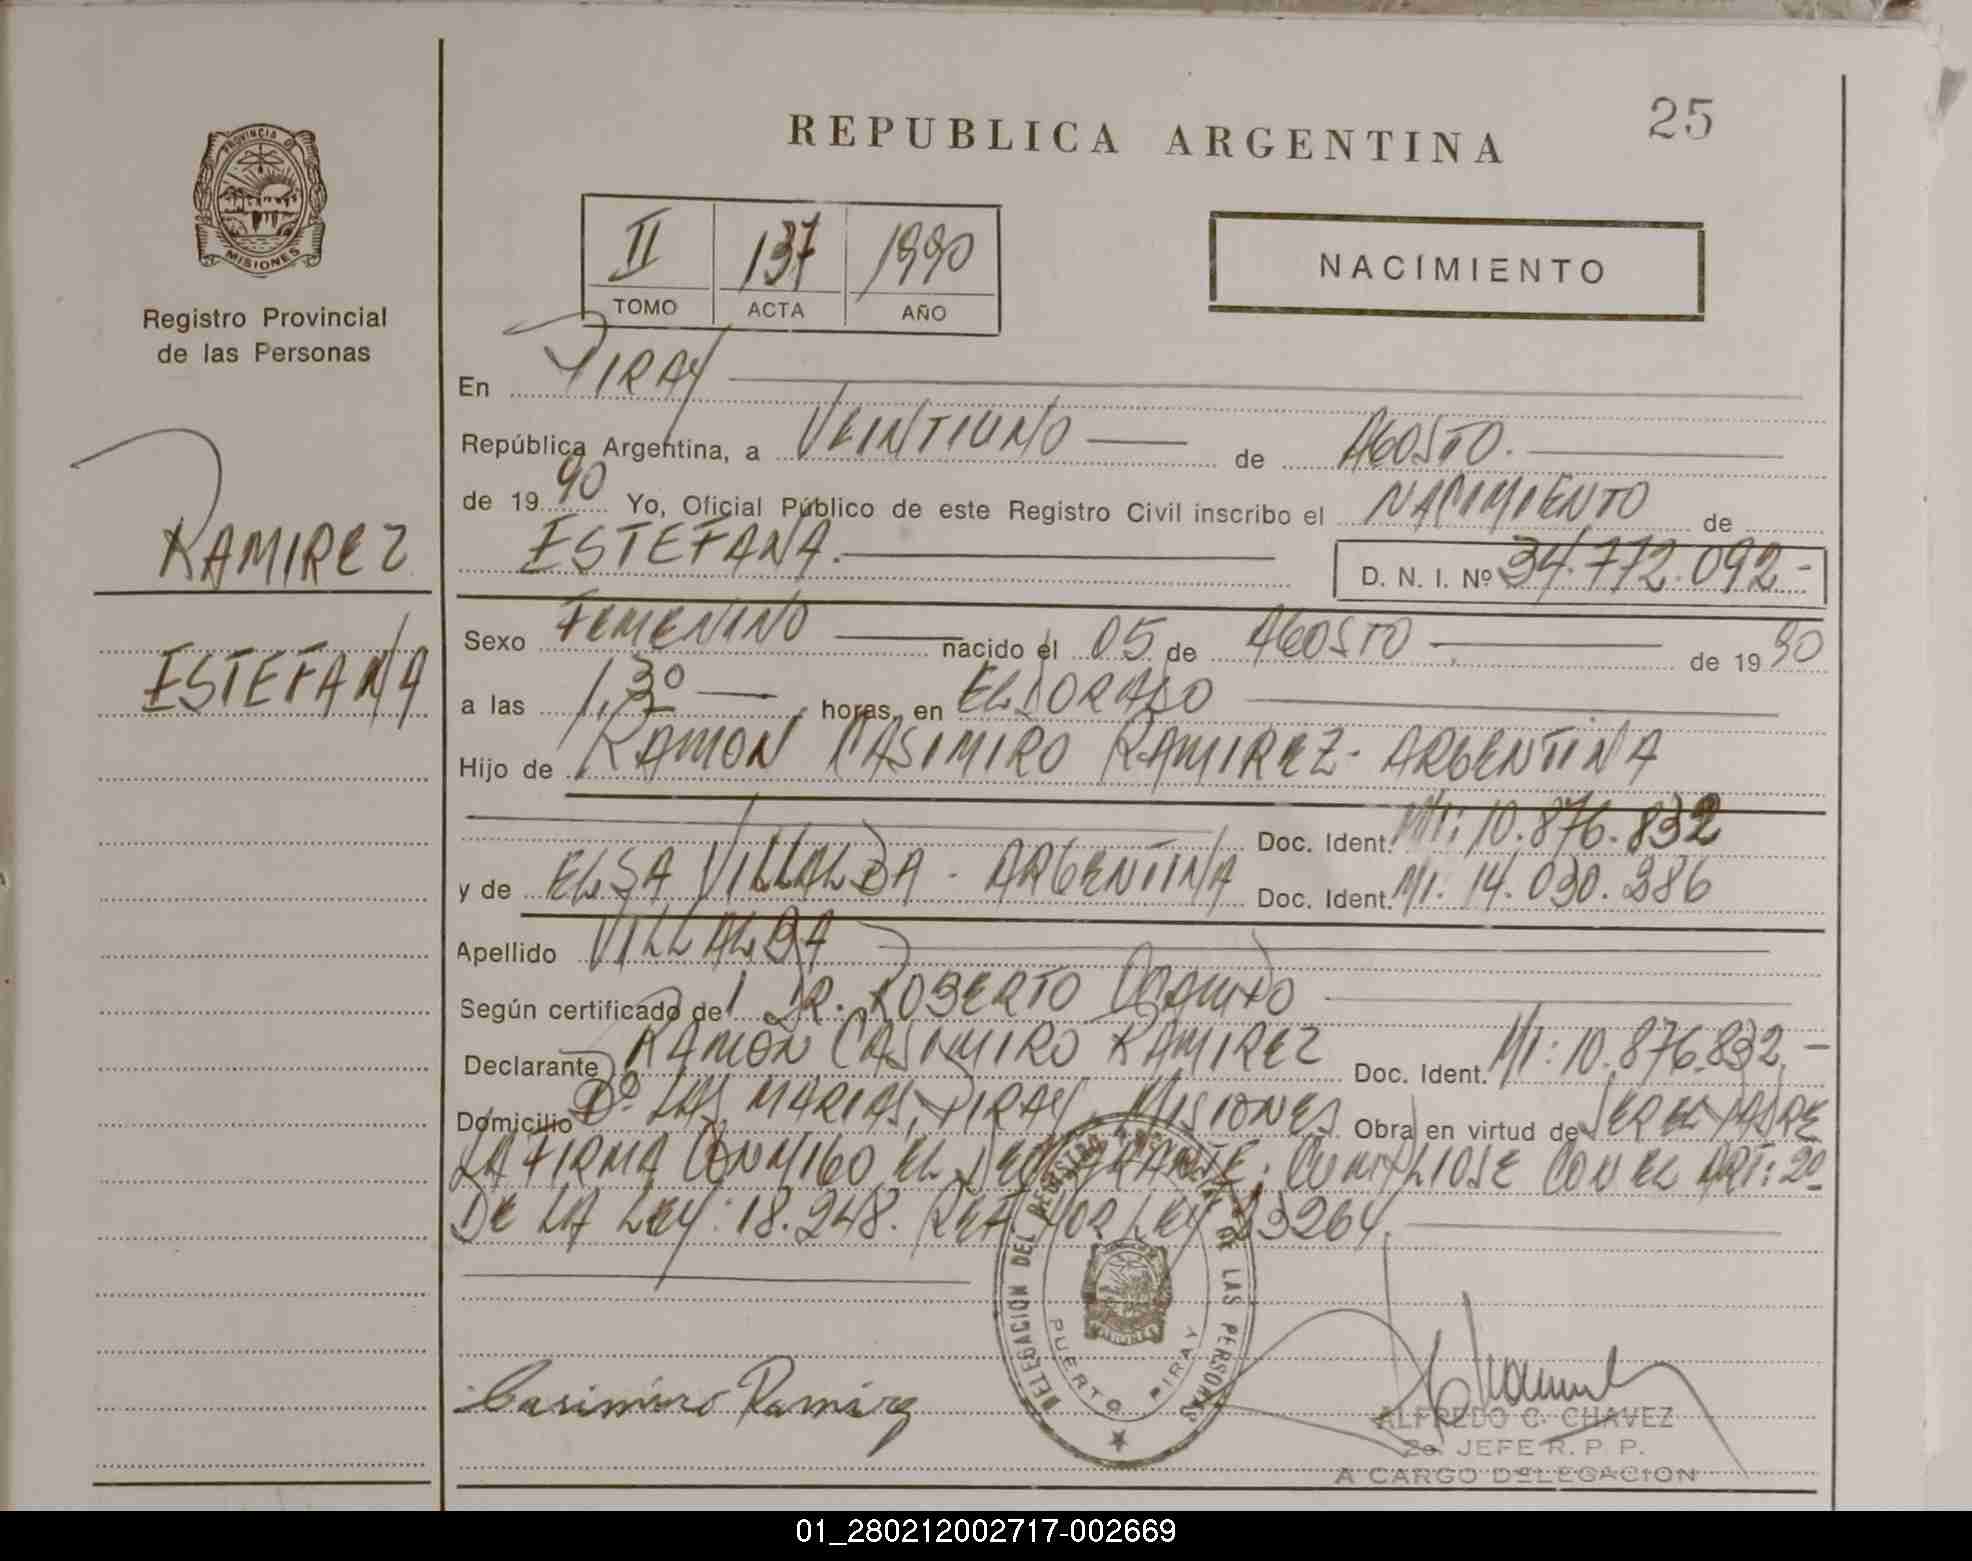 REPUBLICA ARGENTINA
25
PROVINCIA DE
MISIONES
Registro Provincial
de las Personas
RAMIREZ
ESTEFANA
II 137 1990
TOMO ACTA AÑO
NACIMIENTO
En PIRAY
República Argentina, a VEINTIUNO de AGOSTO.
de 19 90 Yo, Oficial Público de este Registro Civil inscribo el NACIMIENTO de
ESTEFANA. D. N. I. Nº 34.772.092.-
Sexo FEMENINO nacido el 05 de AGOSTO de 19 90
a las 1,30 horas, en ELDORADO
Hijo de RAMON CASIMIRO RAMIREZ - ARGENTINA
Doc. Ident. MI: 10.876.832
y de ELSA VILLALBA - ARGENTINA Doc. Ident. MI. 14.090.386
Apellido VILLALBA
Según certificado del DR. ROBERTO
Declarante RAMON CASIMIRO RAMIREZ Doc. Ident. MI: 10.876.832.-
Domicilio Bº LAS MARIAS, PIRAY, MISIONES Obra en virtud de SER EL PADRE
LA FIRMA CONMIGO EL DECLARANTE; CUMPLIOSE CON EL ART: 2º
DE LA LEY: 18.248. REF. POR LEY 23264.
DELEGACION DEL REGISTRO PROVINCIAL DE LAS PERSONAS
PUERTO PIRAY
MISIONES
Casimiro Ramirez
ALFREDO C. CHAVEZ
2o. JEFE R. P. P.
A CARGO DELEGACION
01_280212002717-002669